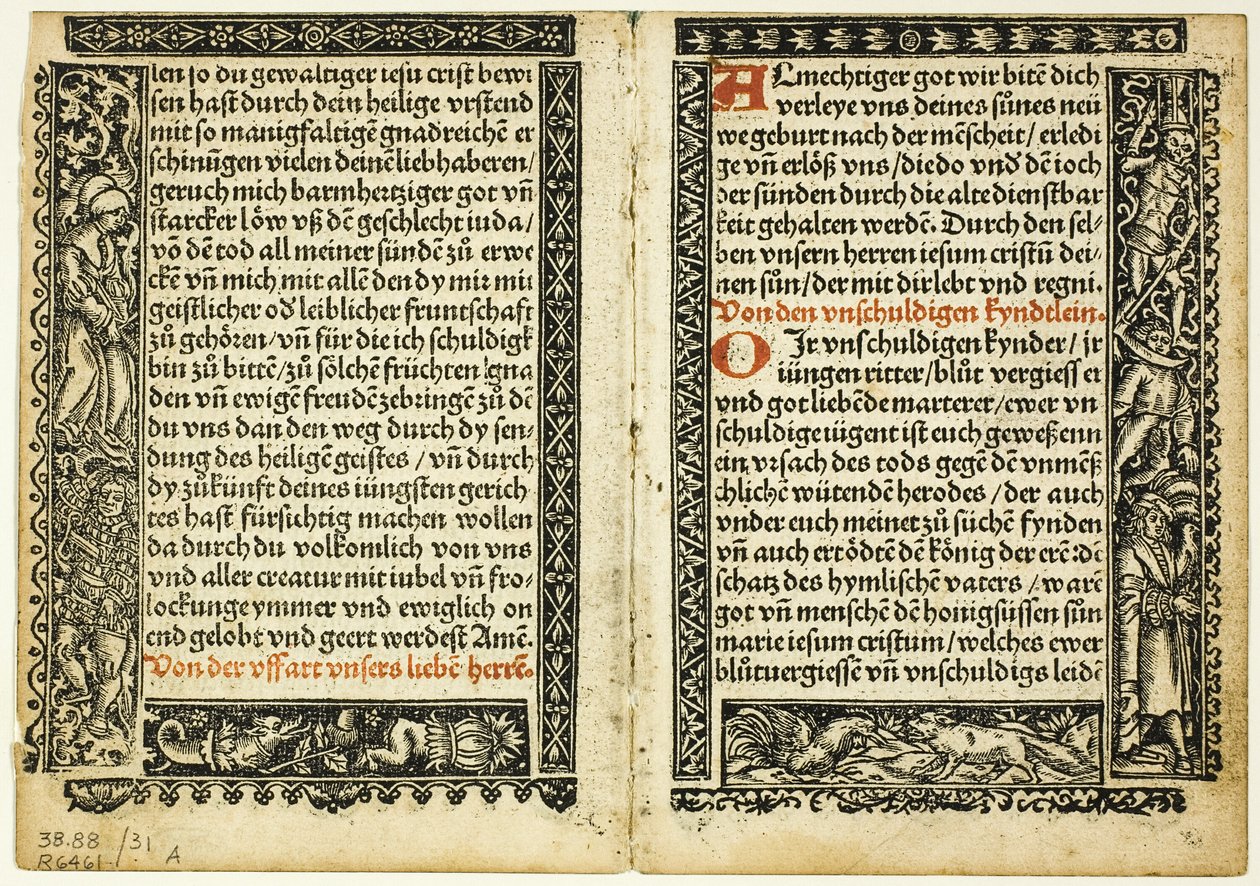 len so du gewaltiger iesu crist bewi
sen hast durch dein heilige vrstend
mit so manigfaltigē gnadreichē er
schinūgen vielen deinē liebhaberen/
geruch mich barmhertziger got vn̄
starcker löw vß dē geschlecht iuda/
vō dē tod all meiner sündē zů erwe
ckē vn̄ mich mit allē den dy mir mit
geistlicher od leiblicher fruntschaft
zů gehören/vn̄ für die ich schuldigk
bin zů bittē/zů sölchē früchten gna
den vn̄ ewigē freudē zebringē zů dē
du vns dan den weg durch dy sen⸗
dung des heiligē geistes / vn̄ durch
dy zůkünft deines iüngsten gerich
tes hast fürsichtig machen wollen
da durch du volkomlich von vns
vnd aller creatur mit iubel vn̄ fro⸗
lockunge ymmer vnd ewiglich on
end gelobt vnd geert werdest Amē.
Von der vffart vnsers liebē herrē.
38.88 /31
R6461 A
ALmechtiger got wir bitē dich
verleye vns deines sůnes neü
we geburt nach der mēscheit/ erledi
ge vn̄ erlöß vns/die do vnd dē ioch
der sünden durch die alte dienstbar
keit gehalten werdē. Durch den sel⸗
ben vnsern herren iesum cristū dei⸗
nen sůn/der mit dir lebt vnd regni.
Von den vnschuldigen kyndtlein.
O Jr vnschuldigen kynder/ jr
iüngen ritter/blůt vergiess er
vnd got liebēde marterer/ewer vn
schuldige iügent ist euch geweßenn
ein vrsach des tods gegē dē vnmēß
chlichē wütendē herodes /der auch
vnder euch meinet zů süchē fynden
vn̄ auch ertödtē dē könig der erē: dē
schatz des hymlischē vaters /warē
got vn̄ menschē dē honigsüssen sůn
marie iesum cristum/welches ewer
blůtuergiessē vn̄ vnschuldigs leidē